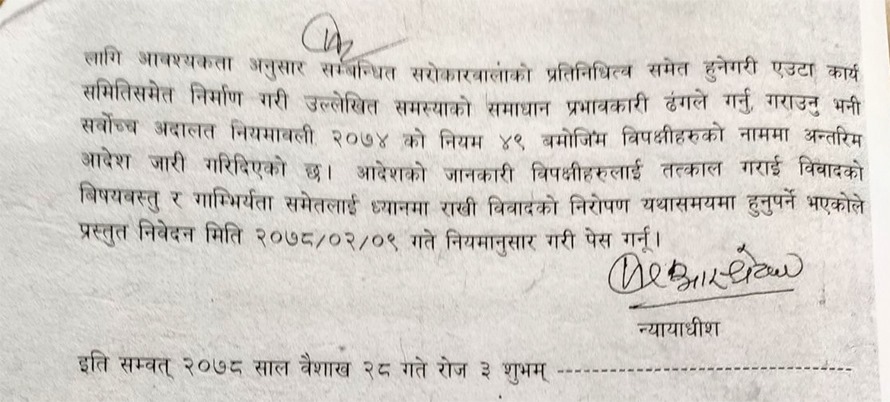 लागि आवश्यकता अनुसार सम्बन्धित सरोकारवालाको प्रतिनिधित्व समेत हुनेगरी एउटा कार्य
समितिसमेत निर्माण गरी उल्लेखित समस्याको समाधान प्रभावकारी ढंगले गर्नु, गराउनु भनी
सर्वोच्च अदालत नियमावली २०७४ को नियम ४९ बमोजिम विपक्षीहरुको नाममा अन्तरिम
आदेश जारी गरिदिएको छ। आदेशको जानकारी विपक्षीहरुलाई तत्काल गराई विवादको
बिषयबस्तु र गाम्भिर्यता समेतलाई ध्यानमा राखी विवादको निरोपण यथासमयमा हुनुपर्ने भएकोले
प्रस्तुत निवेदन मिति २०७८/०२/०९ गते नियमानुसार गरी पेस गर्नू।
न्यायाधीश
इति सम्वत् २०७८ साल वैशाख २८ गते रोज ३ शुभम् ----------------------------------